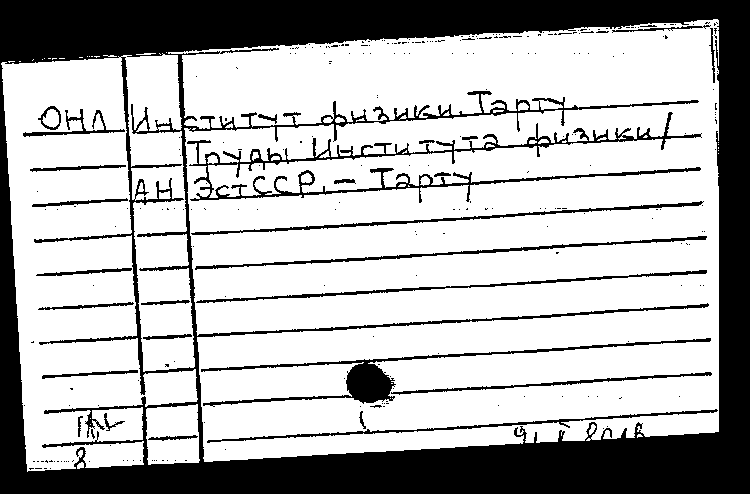 ОНЛ Институт физики. Тарту.
Труды Института физики /
АН ЭстССР. – Тарту
8